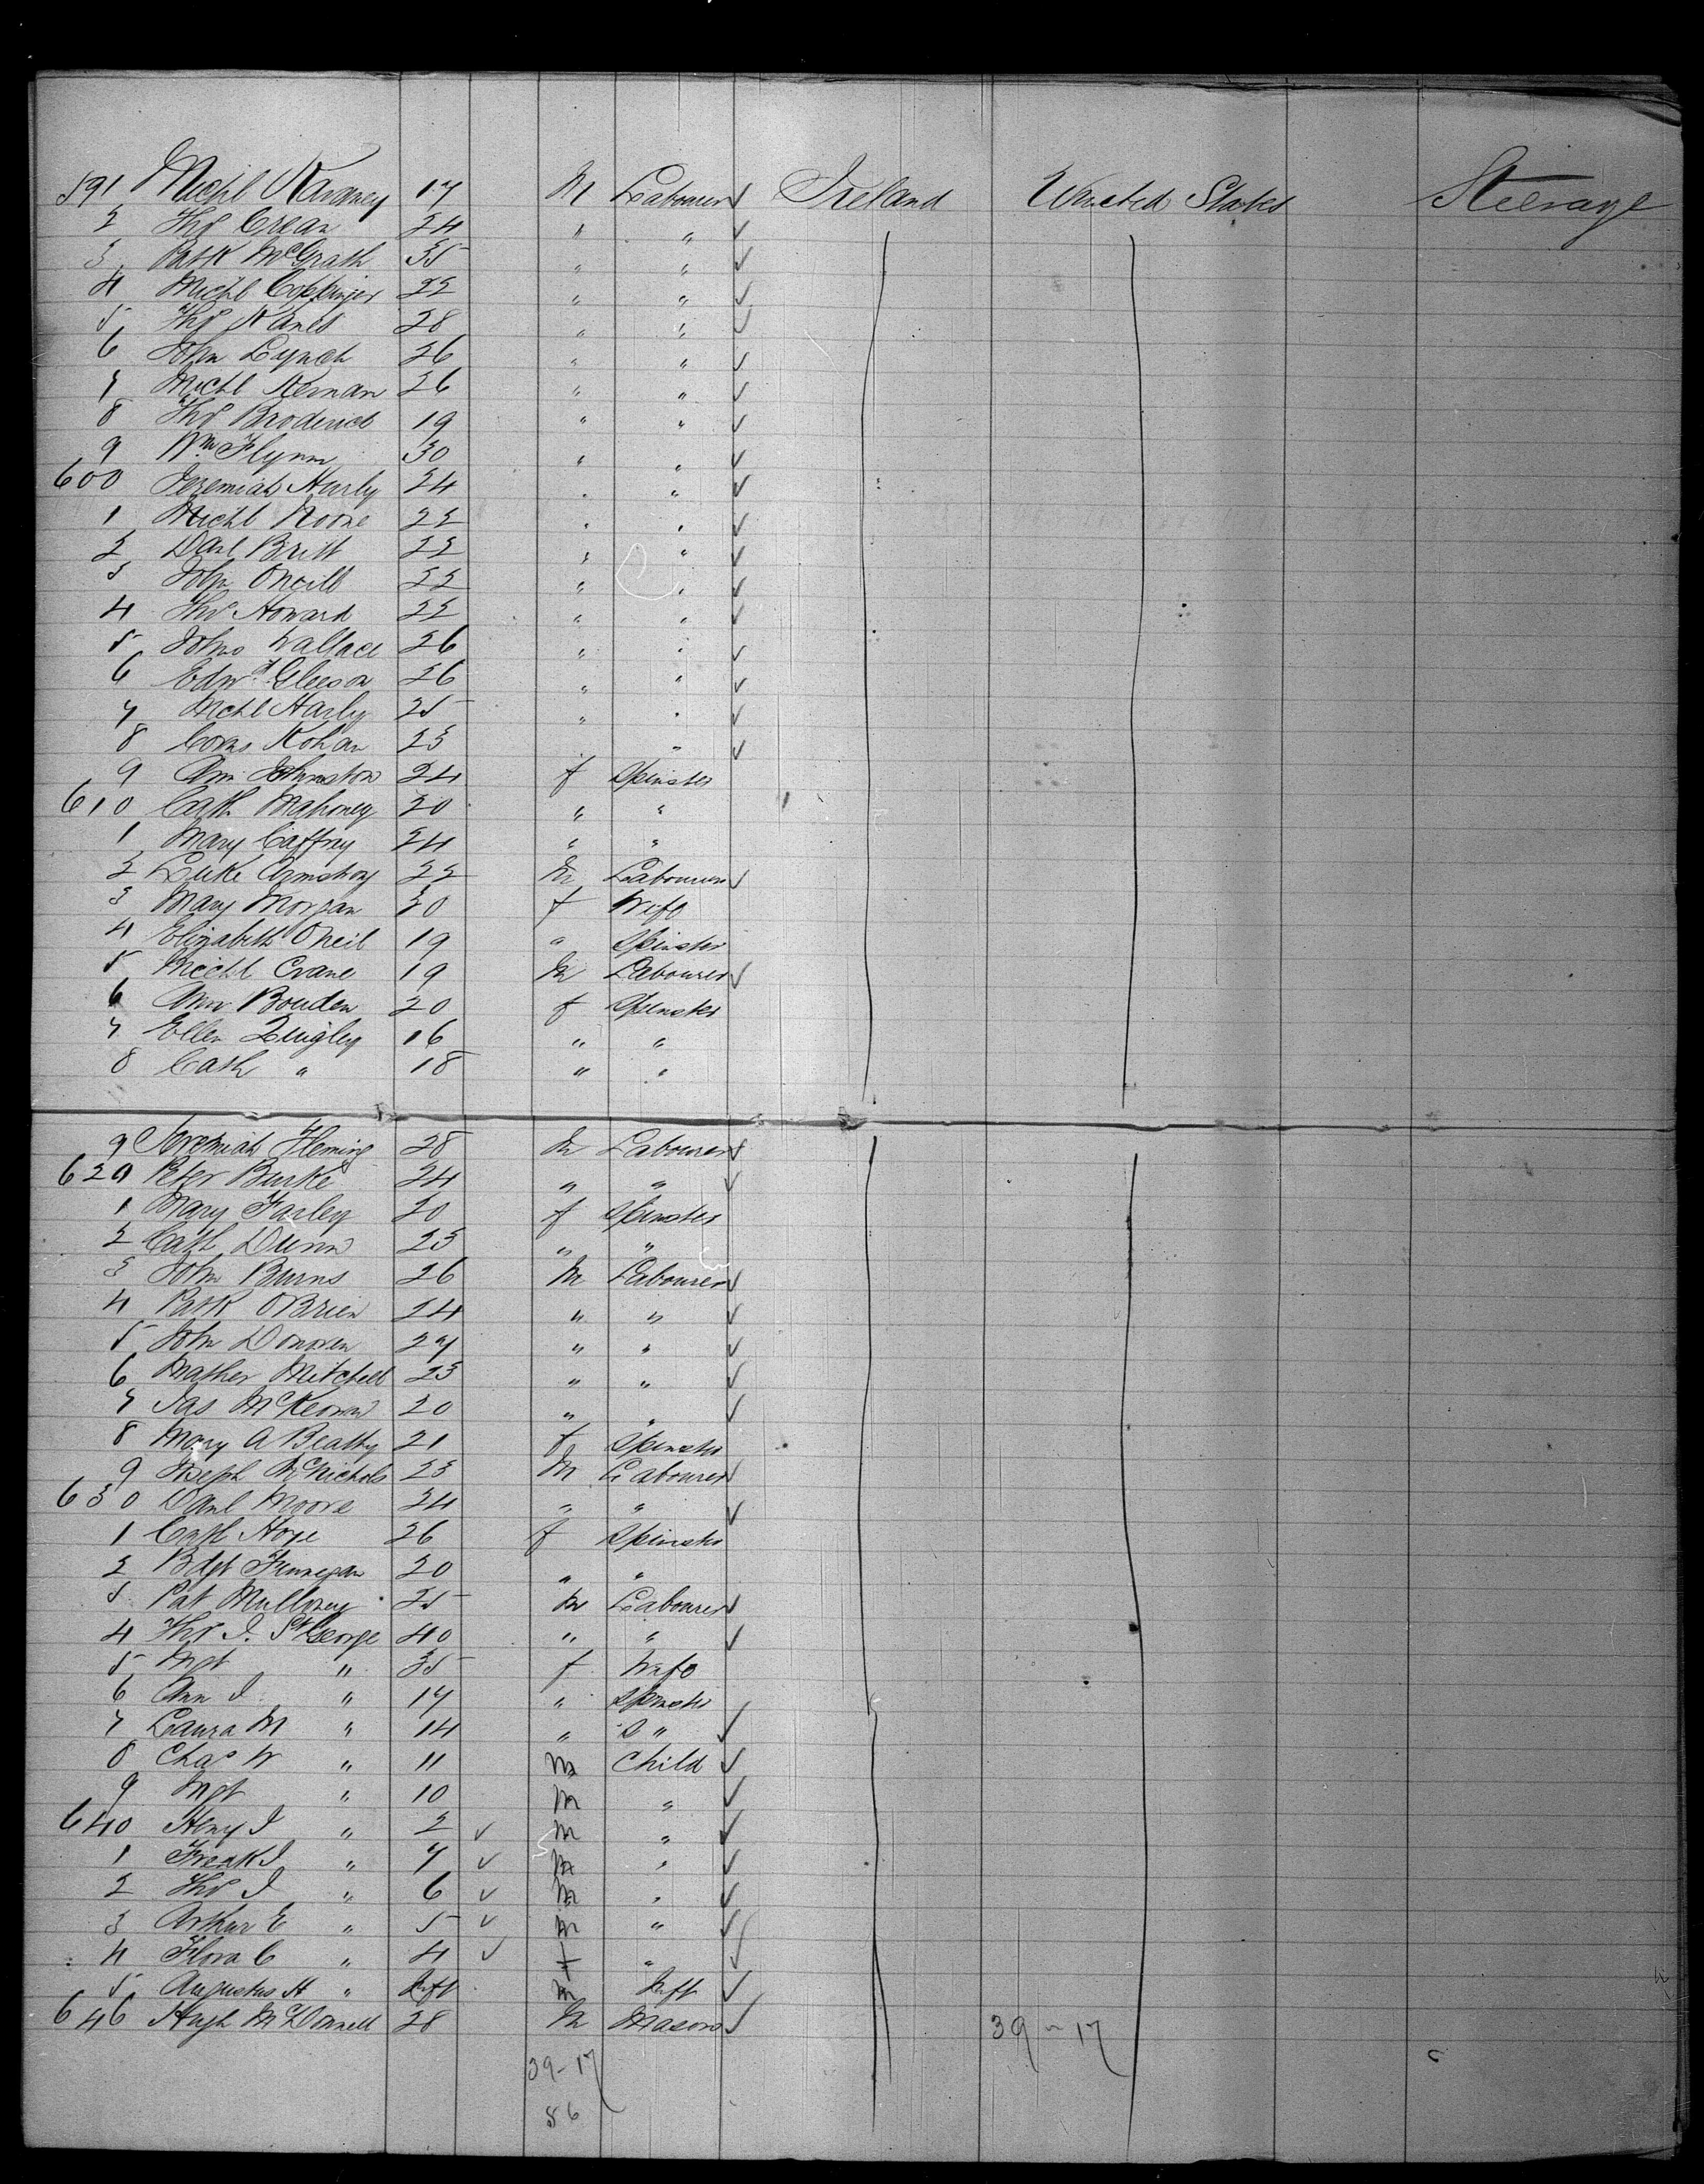 591 Michl Kearney 17 M Labourer Ireland United States Steerage
2 Thos Crean 24 " "
3 Patk McGrath 35 " "
4 Michl Coppinger 22 " "
5 Thos Kanes 28 " "
6 John Lynch 26 " "
7 Michl Kernan 26 " "
8 Thos Broderick 19 " "
9 Wm Flynn 30 " "
600 Jeremiah Hurly 24 " "
1 Michl Moore 22 " "
2 Danl Britt 22 " "
3 John Oneill 22 " "
4 Thos Howard 22 " "
5 John Wallace 26 " "
6 Edwd Gleeson 26 " "
7 Michl Harly 25 " "
8 Corns Kohan 23 "
9 Ann Johnston 24 f Spinster
610 Cath Mahoney 20 " "
1 Mary Caffrey 24 " "
2 Luke Armstrong 22 M Labourer
3 Mary Morgan 30 f Wife
4 Elizabeth ONeil 19 " Spinster
5 Michl Crane 19 M Labourer
6 Ann Bouden 20 f Spinster
7 Ellen Quigley 16 " "
8 Cath " 18 " "
9 Jeremiah Fleming 28 M Labourer
620 Peter Burke 24 " "
1 Mary Farley 20 f Spinster
2 Cath Dunn 23 " "
3 John Burns 26 M Labourer
4 Patk OBrien 24 " "
5 John Donovan 27 " "
6 Mather Mitchell 23 " "
7 Jas McKeown 20 " "
8 Mary A Beatty 21 f Spinster
9 Joseph McNichols 23 M Labourer
630 Danl Moore 24 " "
1 Cath Hoye 26 f Spinster
2 Bdgt Finnegan 20 " "
3 Pat Mullowey 25 M Labourer
4 Thos J. St George 40 " "
5 Mgt " 35 f Wife
6 Ann J " 17 " Spinster
7 Laura M " 14 " S "
8 Chas W " 11 M Child
9 Mgt " 10 M "
640 Henry J " 2 M "
1 Frank J " 7 M "
2 Thos J " 6 M "
3 Arthur E " 5 M "
4 Flora C " 4 f "
5 Augustus H " Inft M Inft
646 Hugh McDonnell 28 M Mason 39-17
39-17
56